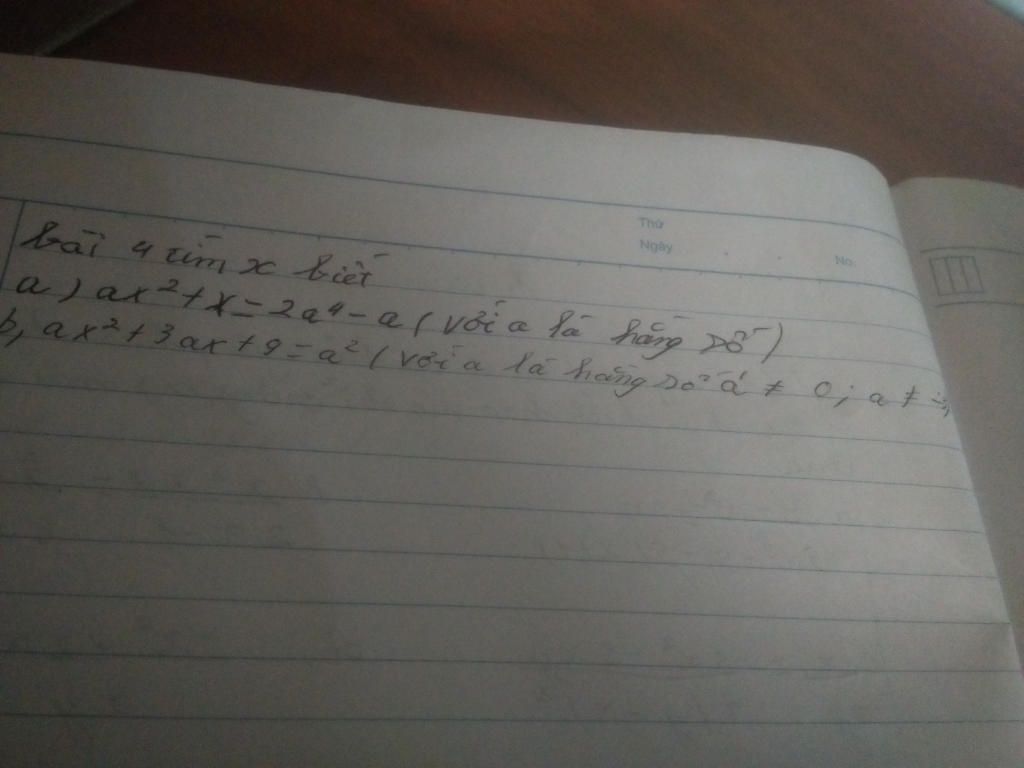 Thứ
Ngày
No.
bài 4 tìm x biết
a) ax² + x = 2a⁴ - a (với a là hằng số)
b, ax² + 3ax + 9 = a² (với a là hằng số a ≠ 0; a ≠ -3